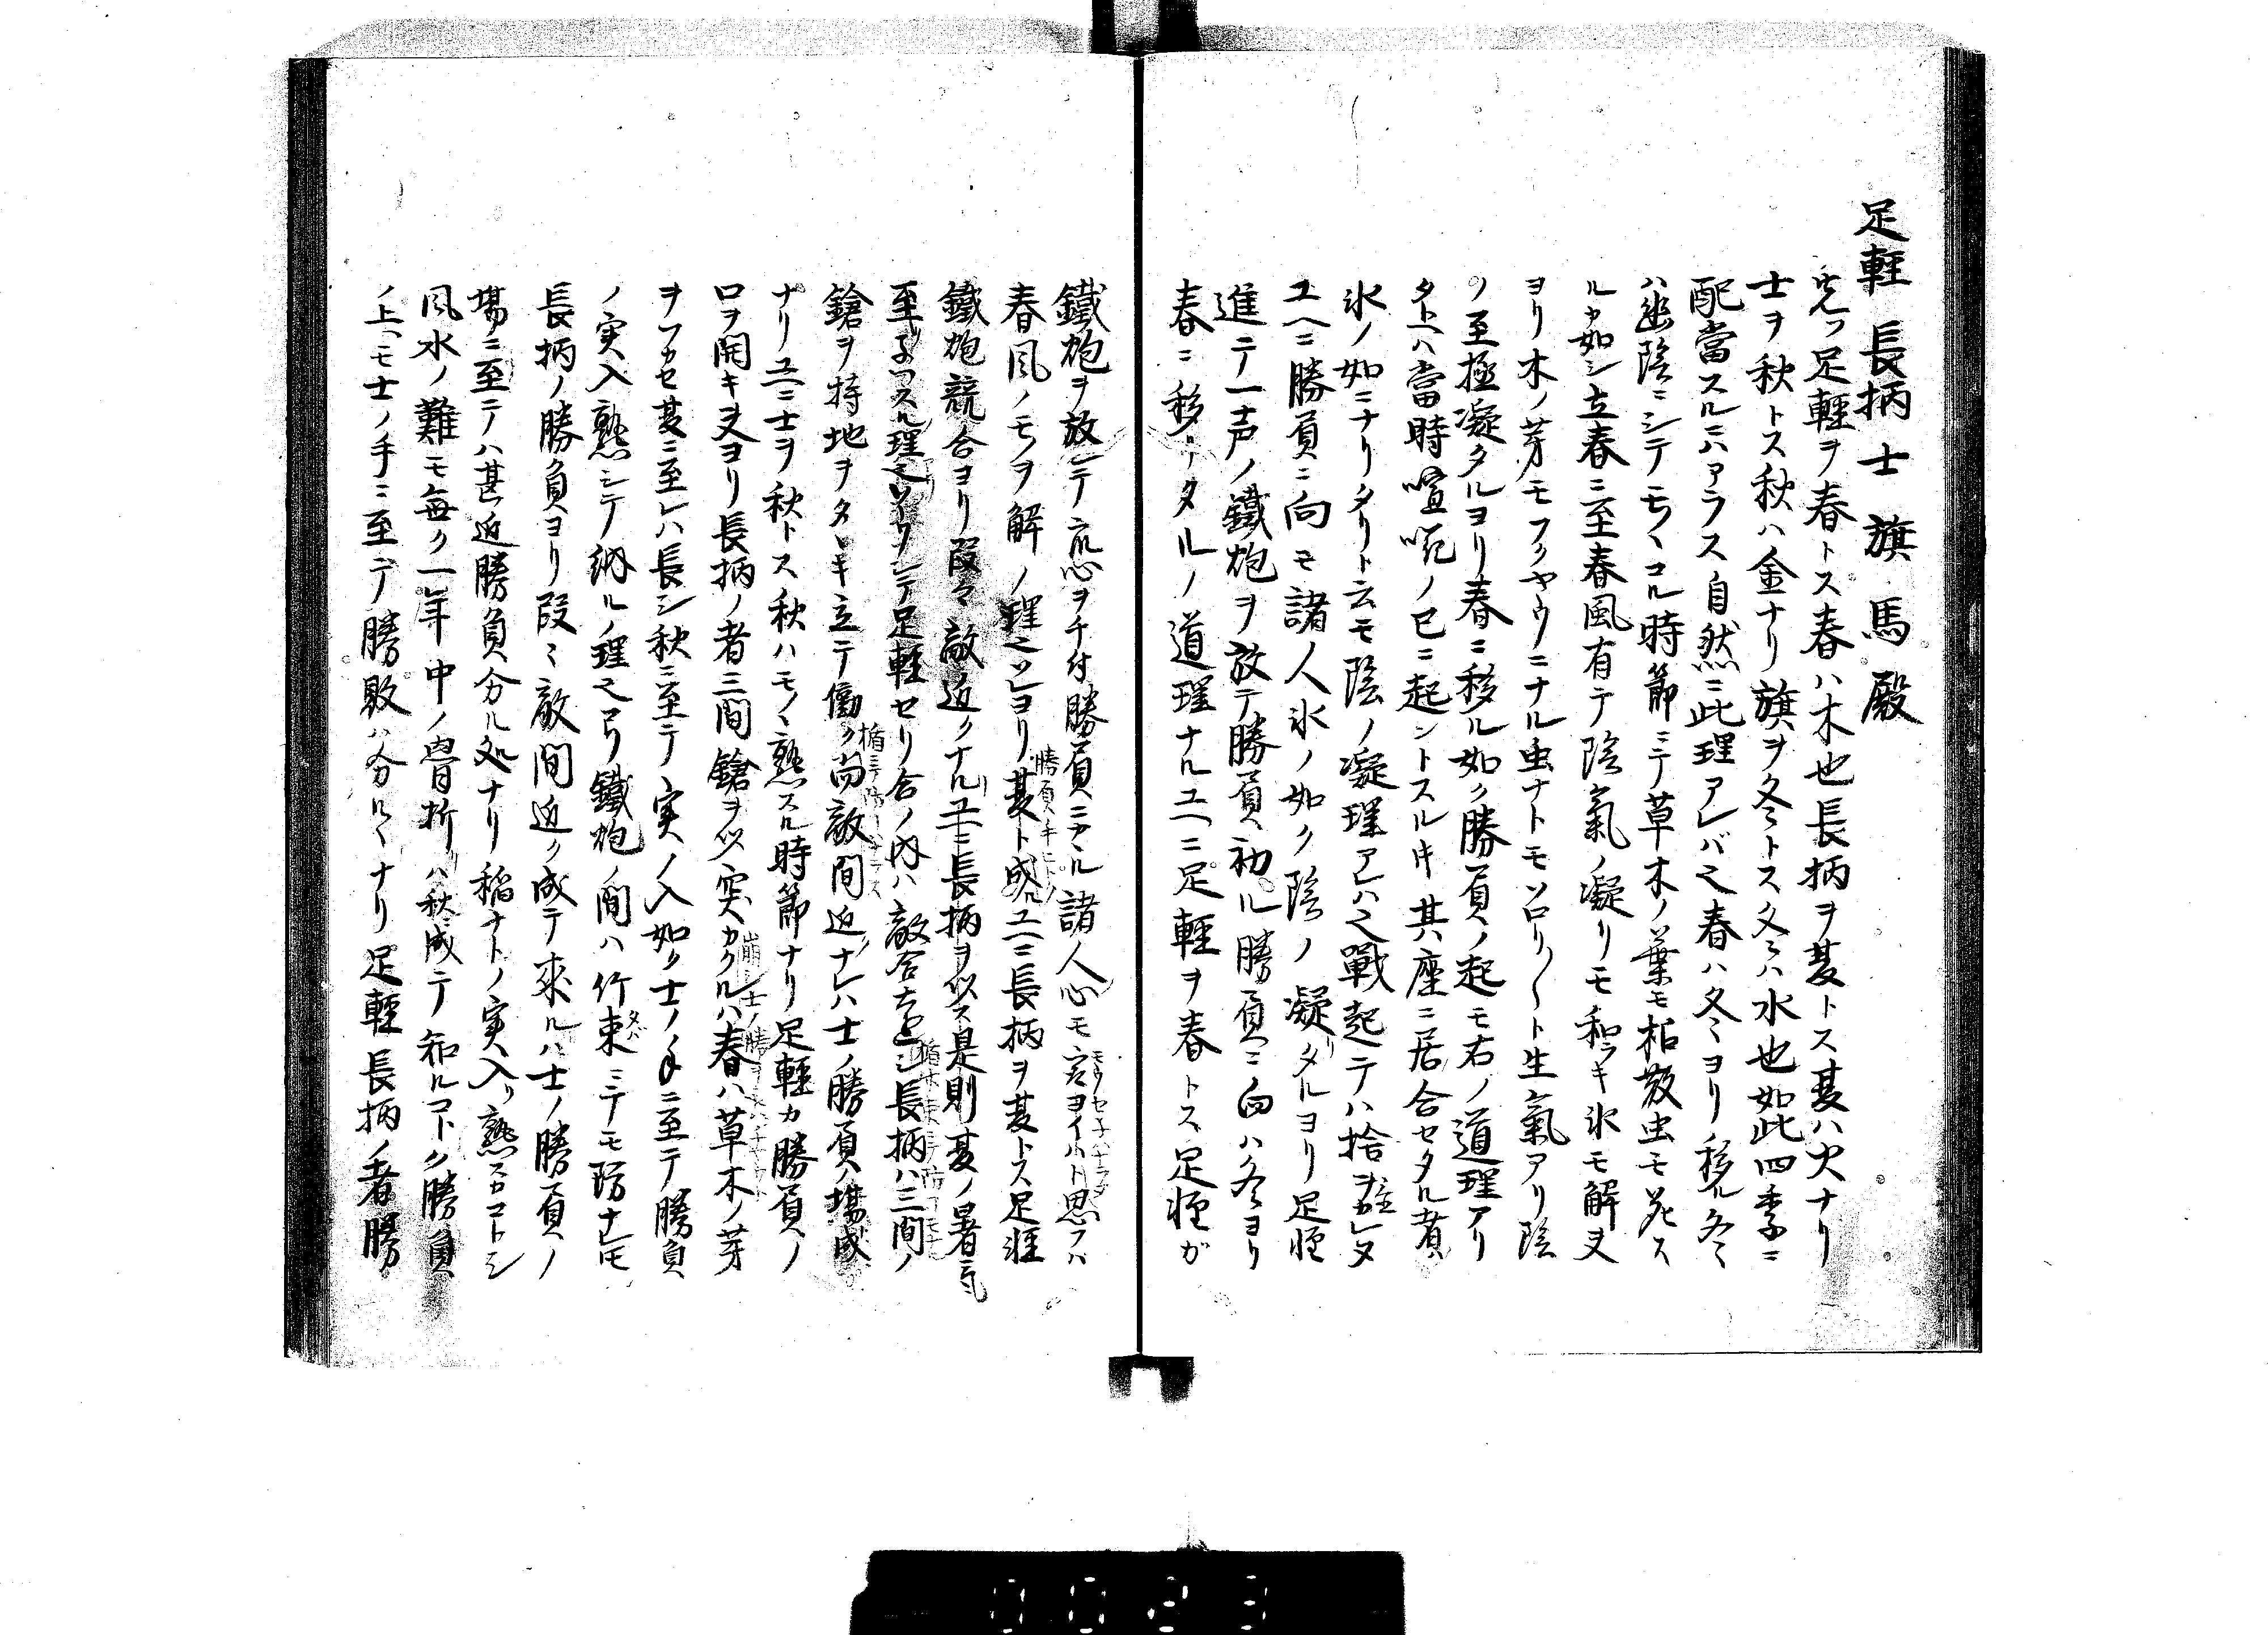 足軽 長柄 士 旗 馬 殿
先ツ足軽ヲ春トス春ハ木也長柄ヲ夏トス夏ハ火ナリ
士ヲ秋トス秋ハ金ナリ旗ヲ冬トス冬ハ水也如此四季ニ
配當スルニハアラス自然ニ此理アレバ之春ハ冬ヨリ移ル冬
ハ幽陰ニシテモノヽコル時節ニテ草木ノ葉モ枯散虫モ死ス
ルカ如シ立春ニ至春風有テ陰氣ノ凝リモ和ラキ氷モ解又
ヨリ木ノ芽モフクヤウニナル虫ナトモソロリ〱ト生氣アリ陰
ノ至極凝タルヨリ春ニ移ル如ク勝負ノ起モ右ノ道理アリ
タトヘハ當時喧咙ノ已ニ起ントスル時其座ニ居合セタル者
氷ノ如ニナリタリト云モ陰ノ凝理アレハ之戰起テハ捨ヲカレヌ
ユヘニ勝負ニ向モ諸人氷ノ如ク陰ノ凝リタルヨリ足軽
進テ一声ノ鐵炮ヲ放テ勝負初ル勝負ニ向ハ冬ヨリ
春ニ移リタルノ道理ナルユヘニ足軽ヲ春トス足軽ガ
鐵炮ヲ放シテ心ヲチ付勝負ニナル諸人心モ ヨイハト思フハ
春風ノモノヲ解ノ理之ソレヨリ夏ト成ルユヘニ長柄ヲ夏トス足軽
鐵炮競合ヨリ段々敵近クナルユヘニ長柄ヲ以ス是則夏ノ暑氣
至 スル理之 足軽セリ合ノ内ハ敵合 長柄ハ三間ノ
鎗ヲ持地ヲタヽキ立テ働ク尚敵間近ナレハ士ノ勝負ノ場成
ナリユヘニ士ヲ秋トス秋ハモノヽ熟スル時節ナリ足軽カ勝負ノ
口ヲ開キ又ヨリ長柄ノ者三間鎗ヲ以突カクルハ春ハ草木ノ芽
ヲフカセ夏ニ至レハ長シ秋ニ至テ実ノ入如ク士ノ手ニ至テ勝負
ノ実入熟シテ納ルノ理之弓鐵炮ノ間ハ竹束ニテモ防ナレモ
長柄ノ勝負ヨリ段々敵間近ク成テ來ルハ士ノ勝負ノ
場ニ至テハ甚近勝負分ル処ナリ稲ナトノ実入リ熟スルコトシ
風水ノ難モ無ク一年中ノ骨折ハ秋成テ知ルコトク勝負
ノ上ヘモ士ノ手ニ至テ勝敗ハ分ルヽナリ足軽長柄ノ者勝